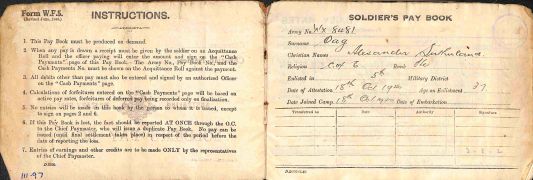 Form W.F.5.
INSTRUCTIONS.
1. This Pay Book must be produced on demand.
2. When any pay is drawn a receipt must be given by the soldier on an Acquittance
Roll and the officer paying will enter the amount and sign on the "Cash
Payments" page of this Pay Book. The Army No., Pay Book No., and the
Cash Payments No. must be shown on the Acquittance Roll against the payment.
3. All debits other than paid must also be entered and signed by an authorised Officer
on the "Cash Payments" page.
4. Calculations of forfeitures entered on the "Cash Payments" page will be based on
active pay rates, forfeitures of deferred pay being recorded only on finalization.
5. No entries will be made in this book by the person to whom it is issued, except
to sign on pages 2 and 6.
6. If this Pay Book is lost, the fact should be reported AT ONCE through the O.C.
to the Chief Paymaster, who will issue a duplicate Pay Book. No pay can be
issued (until final settlement takes place) in respect of the period before the
date of reporting the loss.
7. Entries of earnings and other credits are to be made ONLY by the representatives
of the Chief Paymaster.
111-97
SOLDIER'S PAY BOOK
Army No. WX 8481
Surname Day
Christian Names Alexander
Religion C of E
Enlisted in 5th Military District
Date of Attestation 18th Oct 1940 Age on Enlistment 37
Date Joined Camp 18th Oct 1940 Date of Embarkation
Transferred to Date Authority Signature